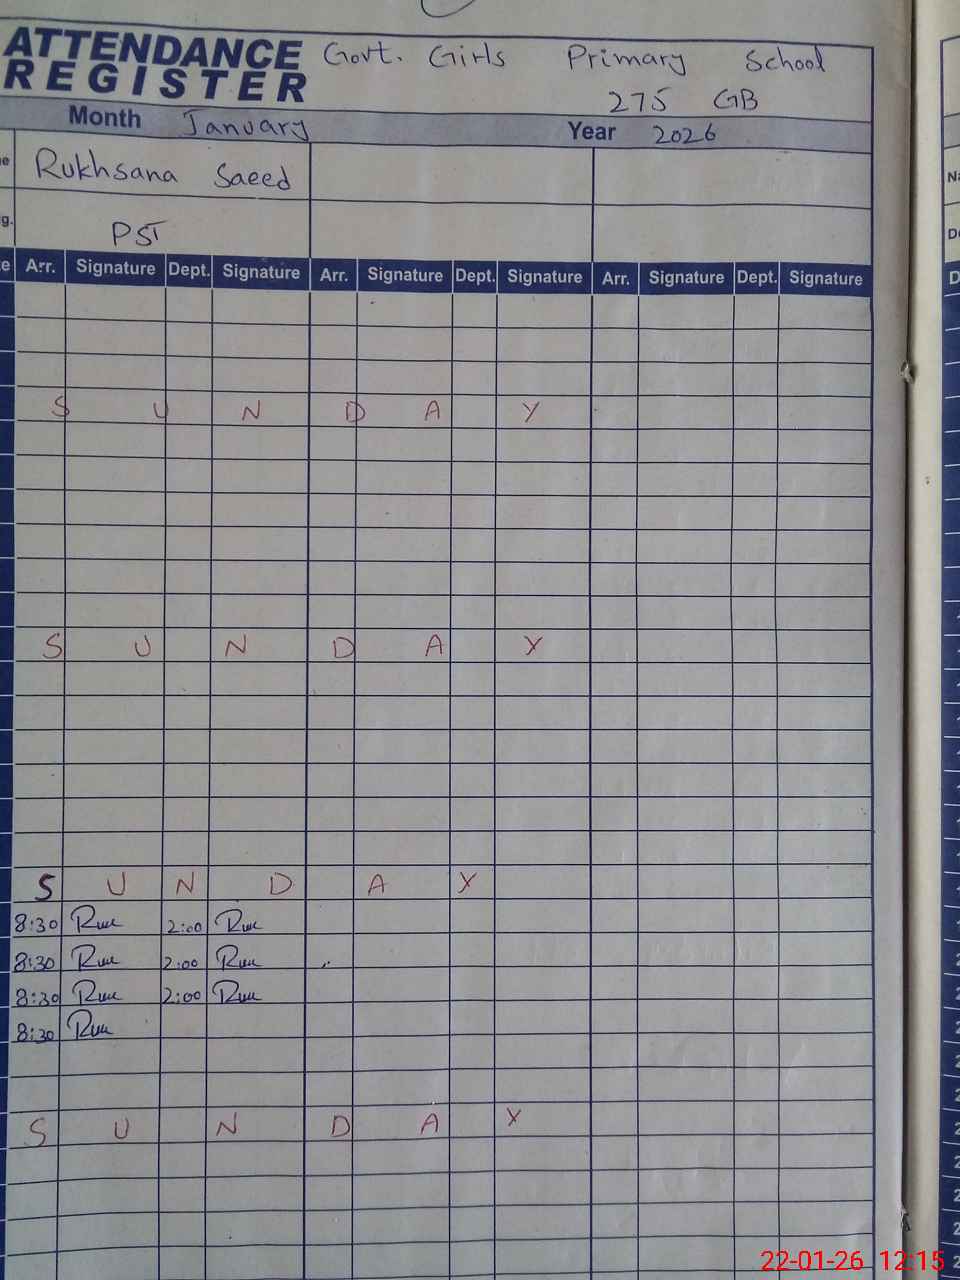 ATTENDANCE REGISTER
Govt. Girls Primary School
275 GB
Month January Year 2026
Rukhsana Saeed
PST
Arr. Signature Dept. Signature Arr. Signature Dept. Signature Arr. Signature Dept. Signature
S U N D A Y
S U N D A Y
S U N D A Y
8:30 Ruu 2:00 Ruu
8:30 Ruu 2:00 Ruu
8:30 Ruu 2:00 Ruu
8:30 Ruu
S U N D A Y
22-01-26 12:15